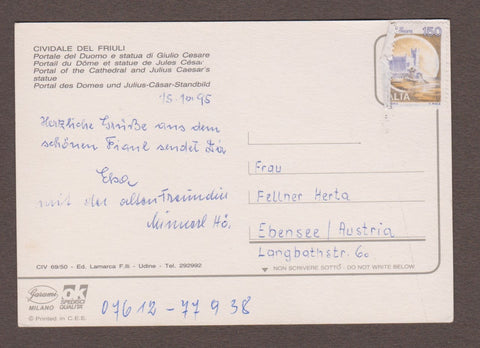 CIVIDALE DEL FRIULI
Portale del Duomo e statua di Giulio Cesare
Portail du Dôme et statue de Jules César
Portal of the Cathedral and Julius Caesar's
statue
Portal des Domes und Julius-Cäsar-Standbild
15.10.95
150
ITALIA
Herzliche Grüße aus dem
schönen sendet Dir
mit der alten Freundin
Hö.
Frau
Fellner Herta
Ebensee / Austria
Langbathstr. 60
CIV 69/50 - Ed. Lamarca F.lli - Udine - Tel. 292992
NON SCRIVERE SOTTO - DO NOT WRITE BELOW
Garami
MILANO
OK
SPEDISCI
QUALITÀ
07612-77938
© Printed in C.E.E.